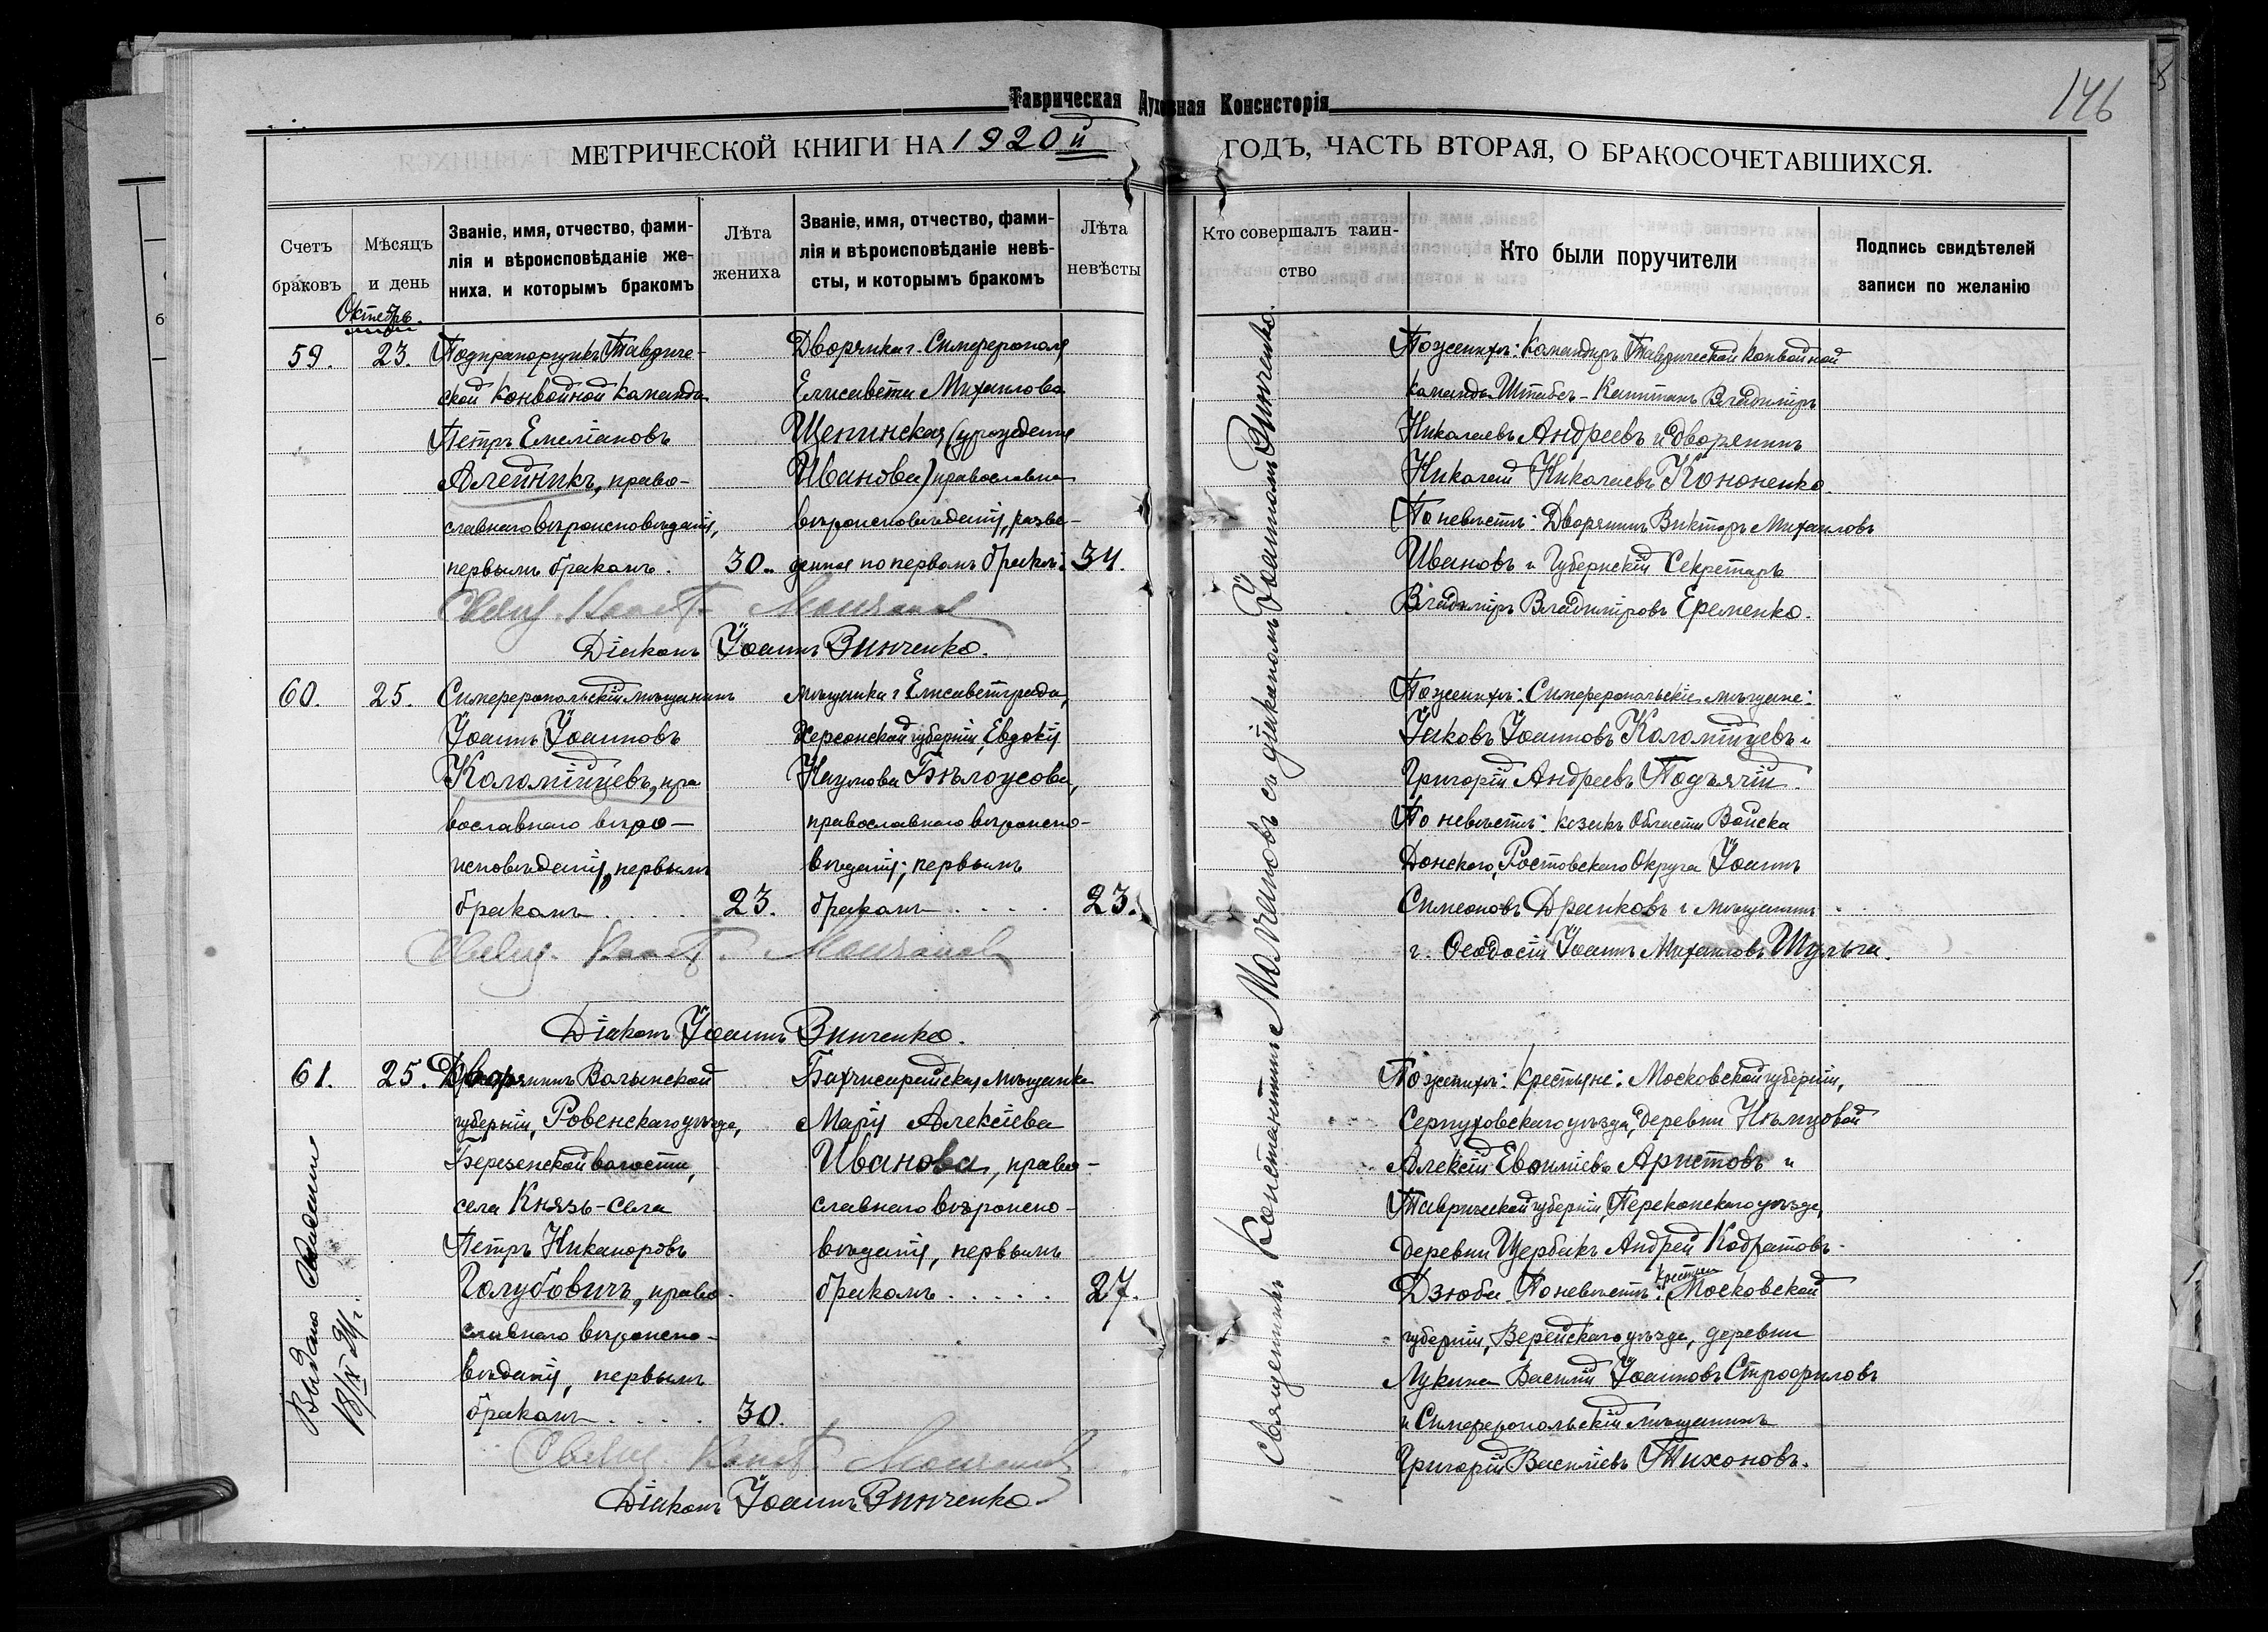 146
Таврическая Духовная Консисторія
МЕТРИЧЕСКОЙ КНИГИ НА 1920й ГОДЪ, ЧАСТЬ ВТОРАЯ, О БРАКОСОЧЕТАВШИХСЯ.
Счетъ браковъ
Мѣсяцъ и день
Званіе, имя, отчество, фами-
лія и вѣроисповѣданіе же-
ниха, и которымъ бракомъ
Лѣта жениха
Званіе, имя, отчество, фами-
лія и вѣроисповѣданіе невѣ-
сты, и которымъ бракомъ
Лѣта невѣсты
Кто совершалъ таин-
ство
Кто были поручители
Подпись свидѣтелей
записи по желанію
Октябрь.
59.
23.
Подпрапорщикъ Тавриче-
ской Конвойной Команды
Петръ Емеліановъ
Алейникъ, право-
славнаго вѣроисповѣданія,
первымъ бракомъ.
30.
Дворянка г. Симферополя
Елисавета Михаилова
Щепинская (урожденная
Иванова) православнаго
вѣроисповѣданія, разве-
денная по первомъ бракѣ.
34.
Свящ. Конст. Молчановъ
Діаконъ Іоаннъ Винченко.
По женихѣ: Командиръ Таврической Конвойной
команды Штабсъ-Капитанъ Владиміръ
Николаевъ Андреевъ и дворянинъ
Николай Николаевъ Кононенко.
По невѣстѣ: Дворянинъ Викторъ Михаиловъ
Ивановъ и Губернскій Секретарь
Владиміръ Владиміровъ Еременко.
60.
25.
Симферопольскій мѣщанинъ
Іоаннъ Іоанновъ
Коломійцевъ, пра
вославнаго вѣро-
исповѣданія, первымъ
бракомъ
23.
мѣщанка г. Елисаветграда,
Херсонской губерніи, Евдокія
Наумова Бѣлоусова,
православнаго вѣроиспо-
вѣданія, первымъ
бракомъ
23.
Свящ. Конст. Молчановъ
Діаконъ Іоаннъ Винченко.
По женихѣ: Симферопольскіе мѣщане:
Іаковъ Іоанновъ Коломійцевъ и
Григорій Андреевъ Подъячій.
По невѣстѣ: козакъ Области Войска
Донского, Ростовскаго Округа Іоаннъ
Симеоновъ Дранковъ и мѣщанинъ
г. Ѳеодосіи Іоаннъ Михаиловъ Шульга.
61.
25.
Дворянинъ Волынской
губерніи, Ровенскаго уѣзда,
Березенской волости,
села Князь-Села
Петръ Никаноровъ
Голубовичъ, право-
славнаго вѣроиспо-
вѣданія, первымъ
бракомъ
30.
Бахчисарайская мѣщанка
Марія Алексіева
Иванова, право-
славнаго вѣроиспо-
вѣданія, первымъ
бракомъ
27.
Свящ. Конст. Молчановъ
Діаконъ Іоаннъ Винченко.
По женихѣ: крестьяне: Московской губерніи,
Серпуховскаго уѣзда, деревни Нѣмцовой
Алексій Евѳиміевъ Аристовъ и
Таврической губерніи, Перекопскаго уѣзда,
деревни Щербакъ Андрей Кодратовъ
Дзюба. По невѣстѣ: крестьян Московской
губерніи, Верейскаго уѣзда, деревни
Лукина Василій Іоанновъ Строфиловъ
и Симферопольскій мѣщанинъ
Григорій Василіевъ Тихоновъ.
Священникъ Константинъ Молчановъ съ діакономъ Іоанномъ Винченко.
Выдано
18/IX